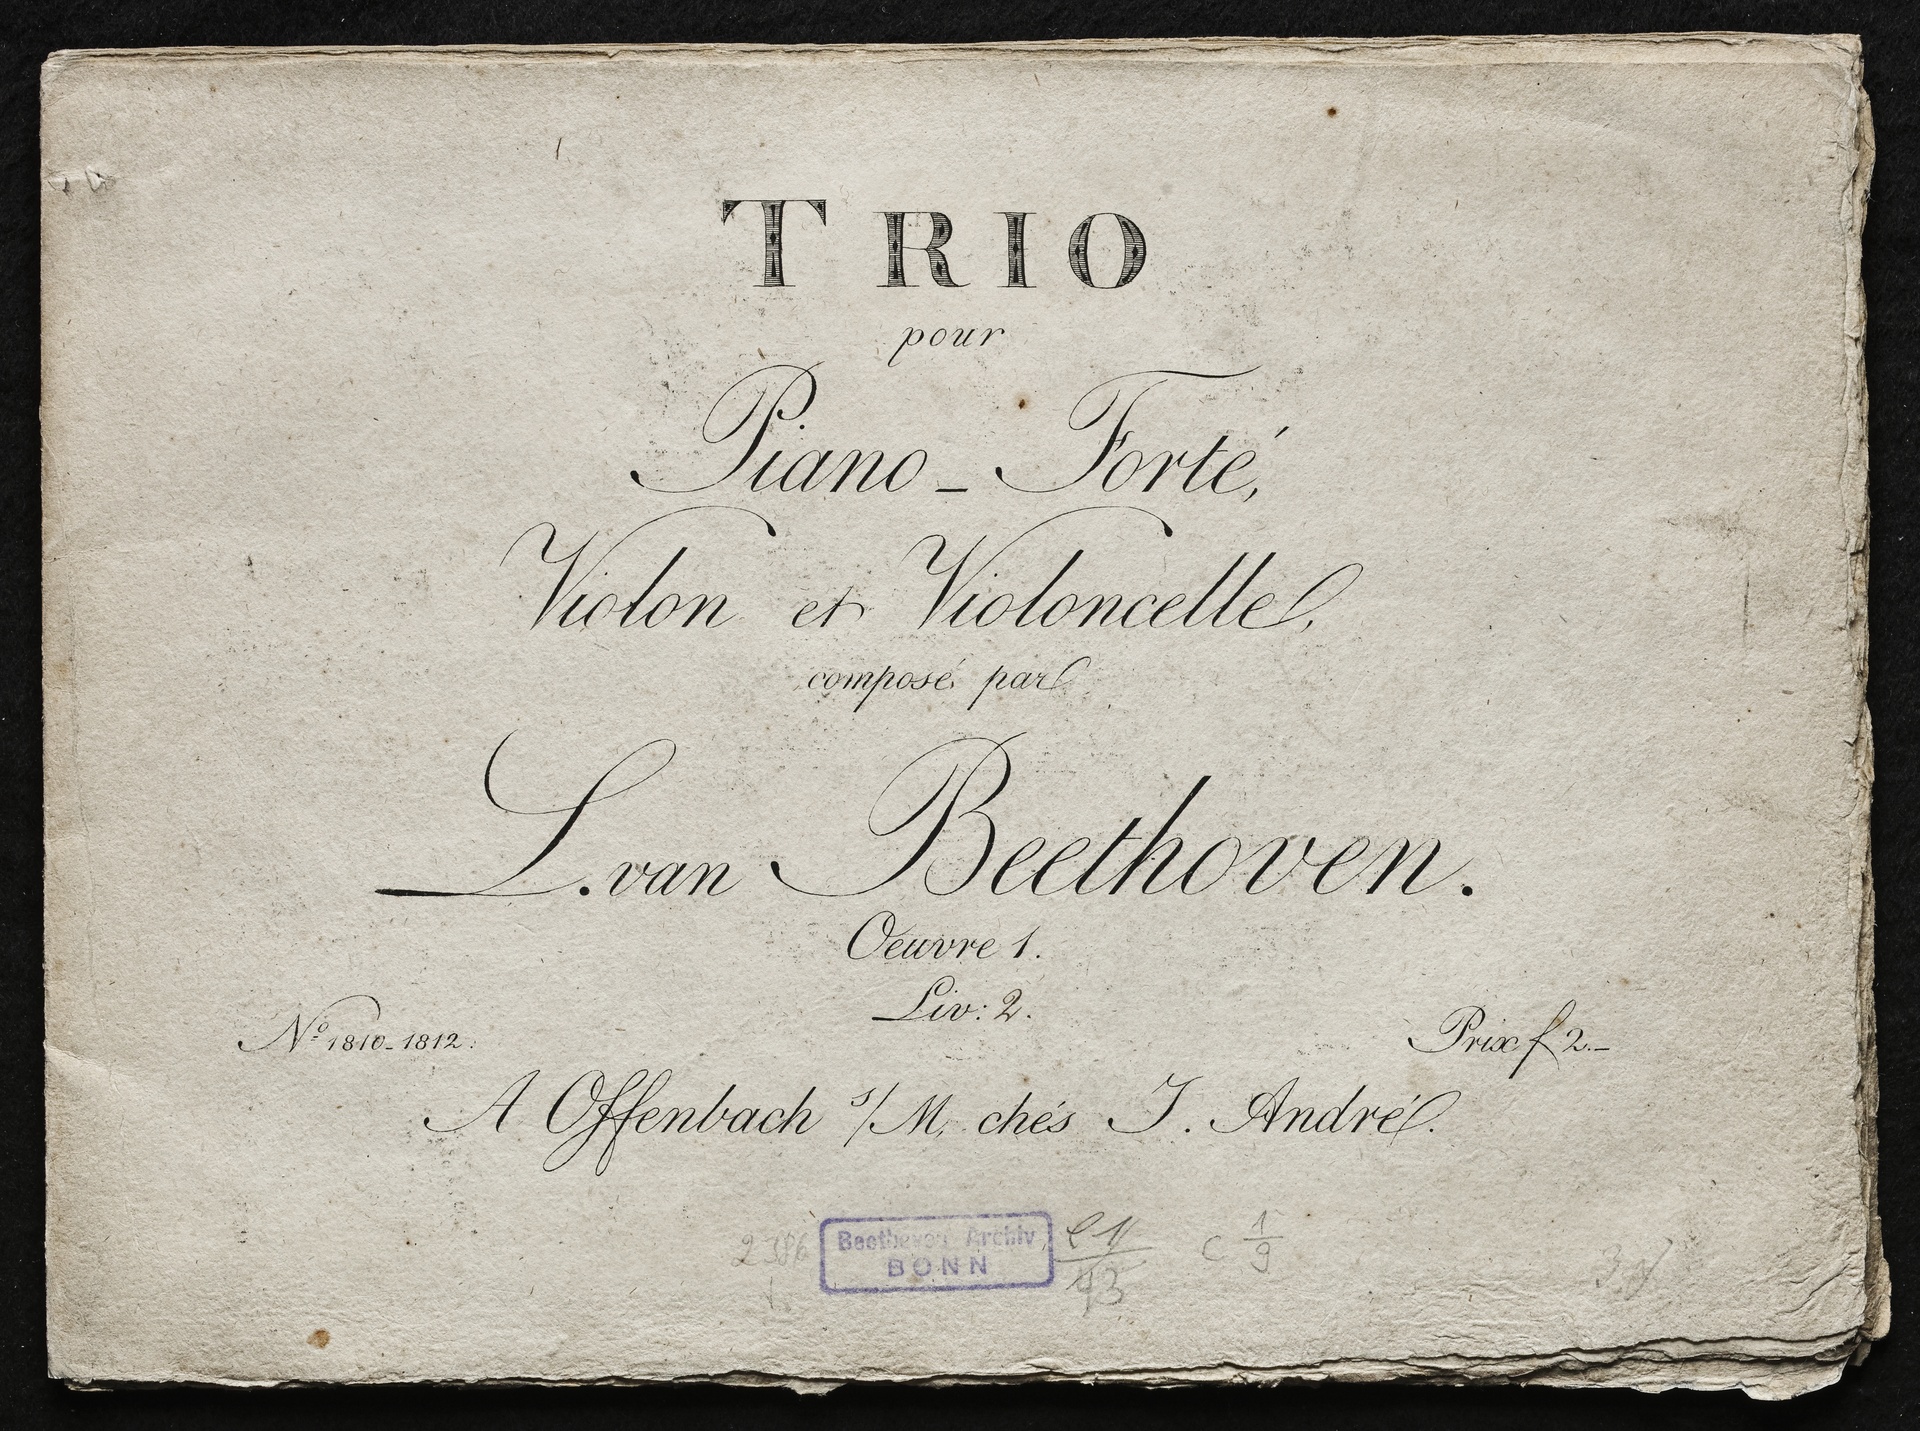 TRIO
pour
Piano-Forté,
Violon et Violoncelle,
composé par
L. van Beethoven.
Oeuvre 1.
Liv: 2.
No. 1810-1812.
Prix f 2.–
A Offenbach s/M, chés J. André.
Beethoven Archiv
BONN
C 1/9